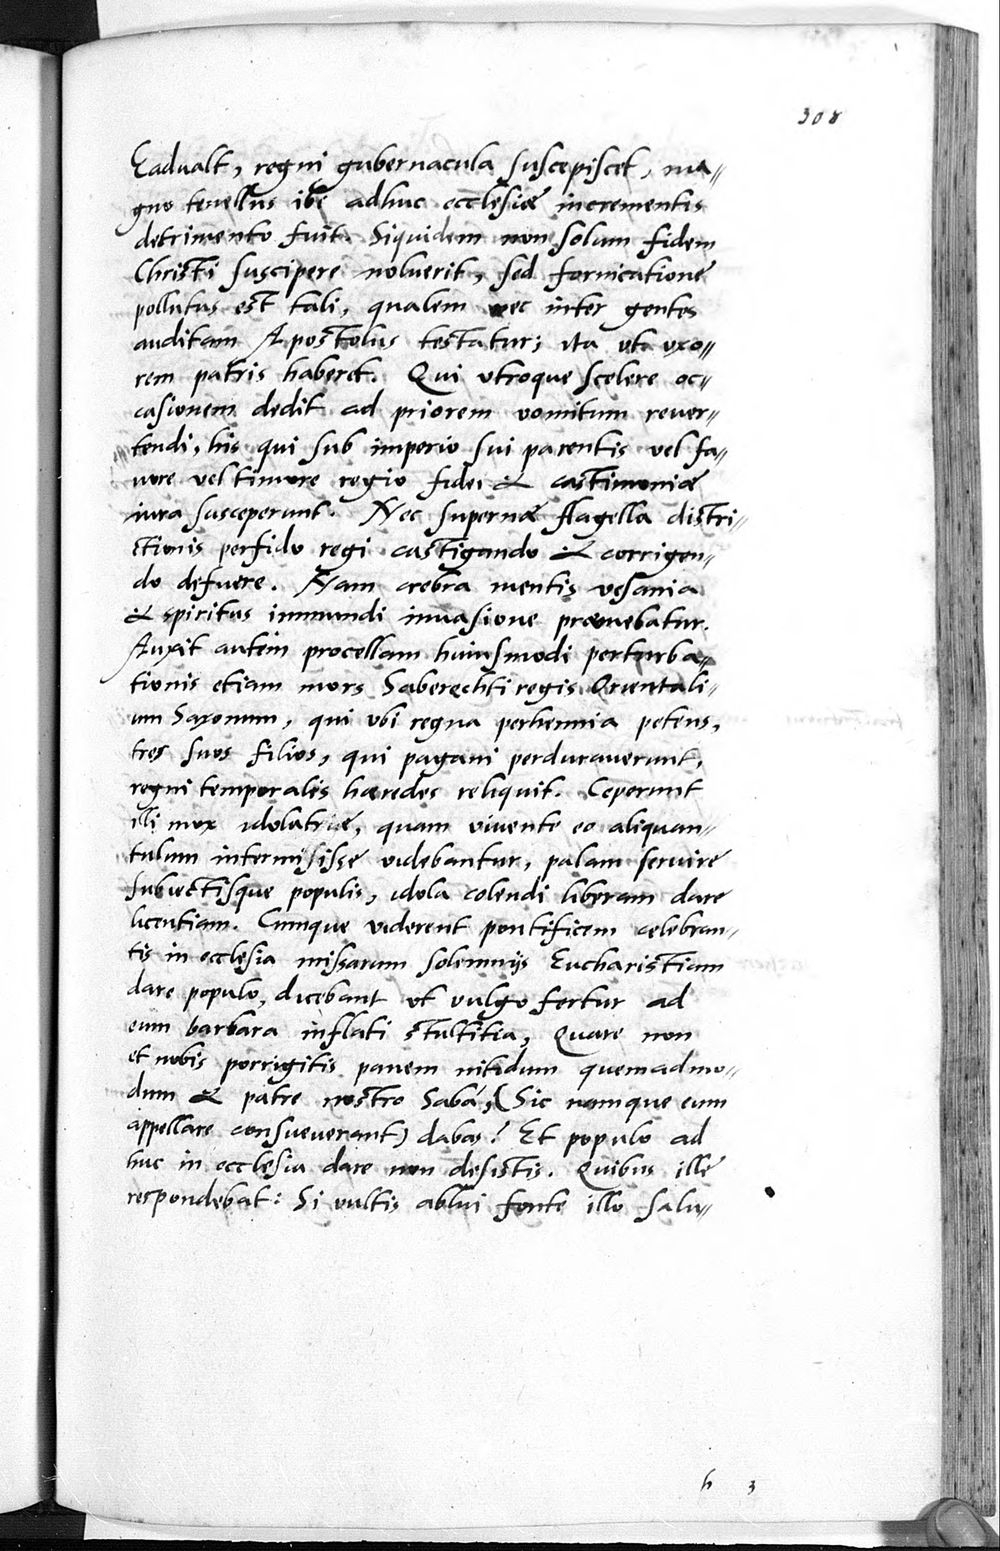 308
Eadualt, regni gubernacula suscepisset, ma//
gno tenellus ibi adhuc ecclesiæ incrementis
detrimento fuit. Siquidem non solum fidem
Christi suscipere noluerit, sed fornicatione
pollutus est tali, qualem nec inter gentes
auditam Apostolus testatur; ita ut uxo//
rem patris haberet. Qui utroque scelere oc//
casionem dedit ad priorem vomitum rever//
tendi, his qui sub imperio sui parentis vel fa//
vore vel timore regio fidei & castimoniæ
iura susceperunt. Nec supernæ flagella distri//
ctionis perfido regi castigando & corrigen//
do defuere. Nam crebra mentis vesania
& spiritus immundi invasione premebatur.
Auxit autem procellam huiusmodi perturba//
tionis etiam mors Saberechti regis Orientali//
um Saxonum, qui ubi regna perhennia petens,
tres suos filios, qui pagani perduraverunt,
regni temporalis hæredes reliquit. Ceperunt
illi mox idolatriæ, quam vivente eo aliquan//
tulum intermisisse videbantur, palam servire
subiectisque populis, idola colendi liberam dare
licentiam. Cumque viderent pontificem celebran//
tis in ecclesia missarum solemnijs Eucharistiam
dare populo, dicebant ut vulgo fertur ad
eum barbara inflati stultitia, Quare non
et nobis porrigitis panem nitidum quemadmo//
dum & patre nostro Saba, (Sic namque eum
appellare consueverant) dabas? Et populo ad
huc in ecclesia dare non desistis. Quibus ille
respondebat: Si vultis ablui fonte illo salu//
h 3